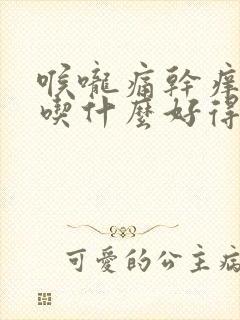 喉嚨痛幹痒
喫什麼好得
可愛的公主病